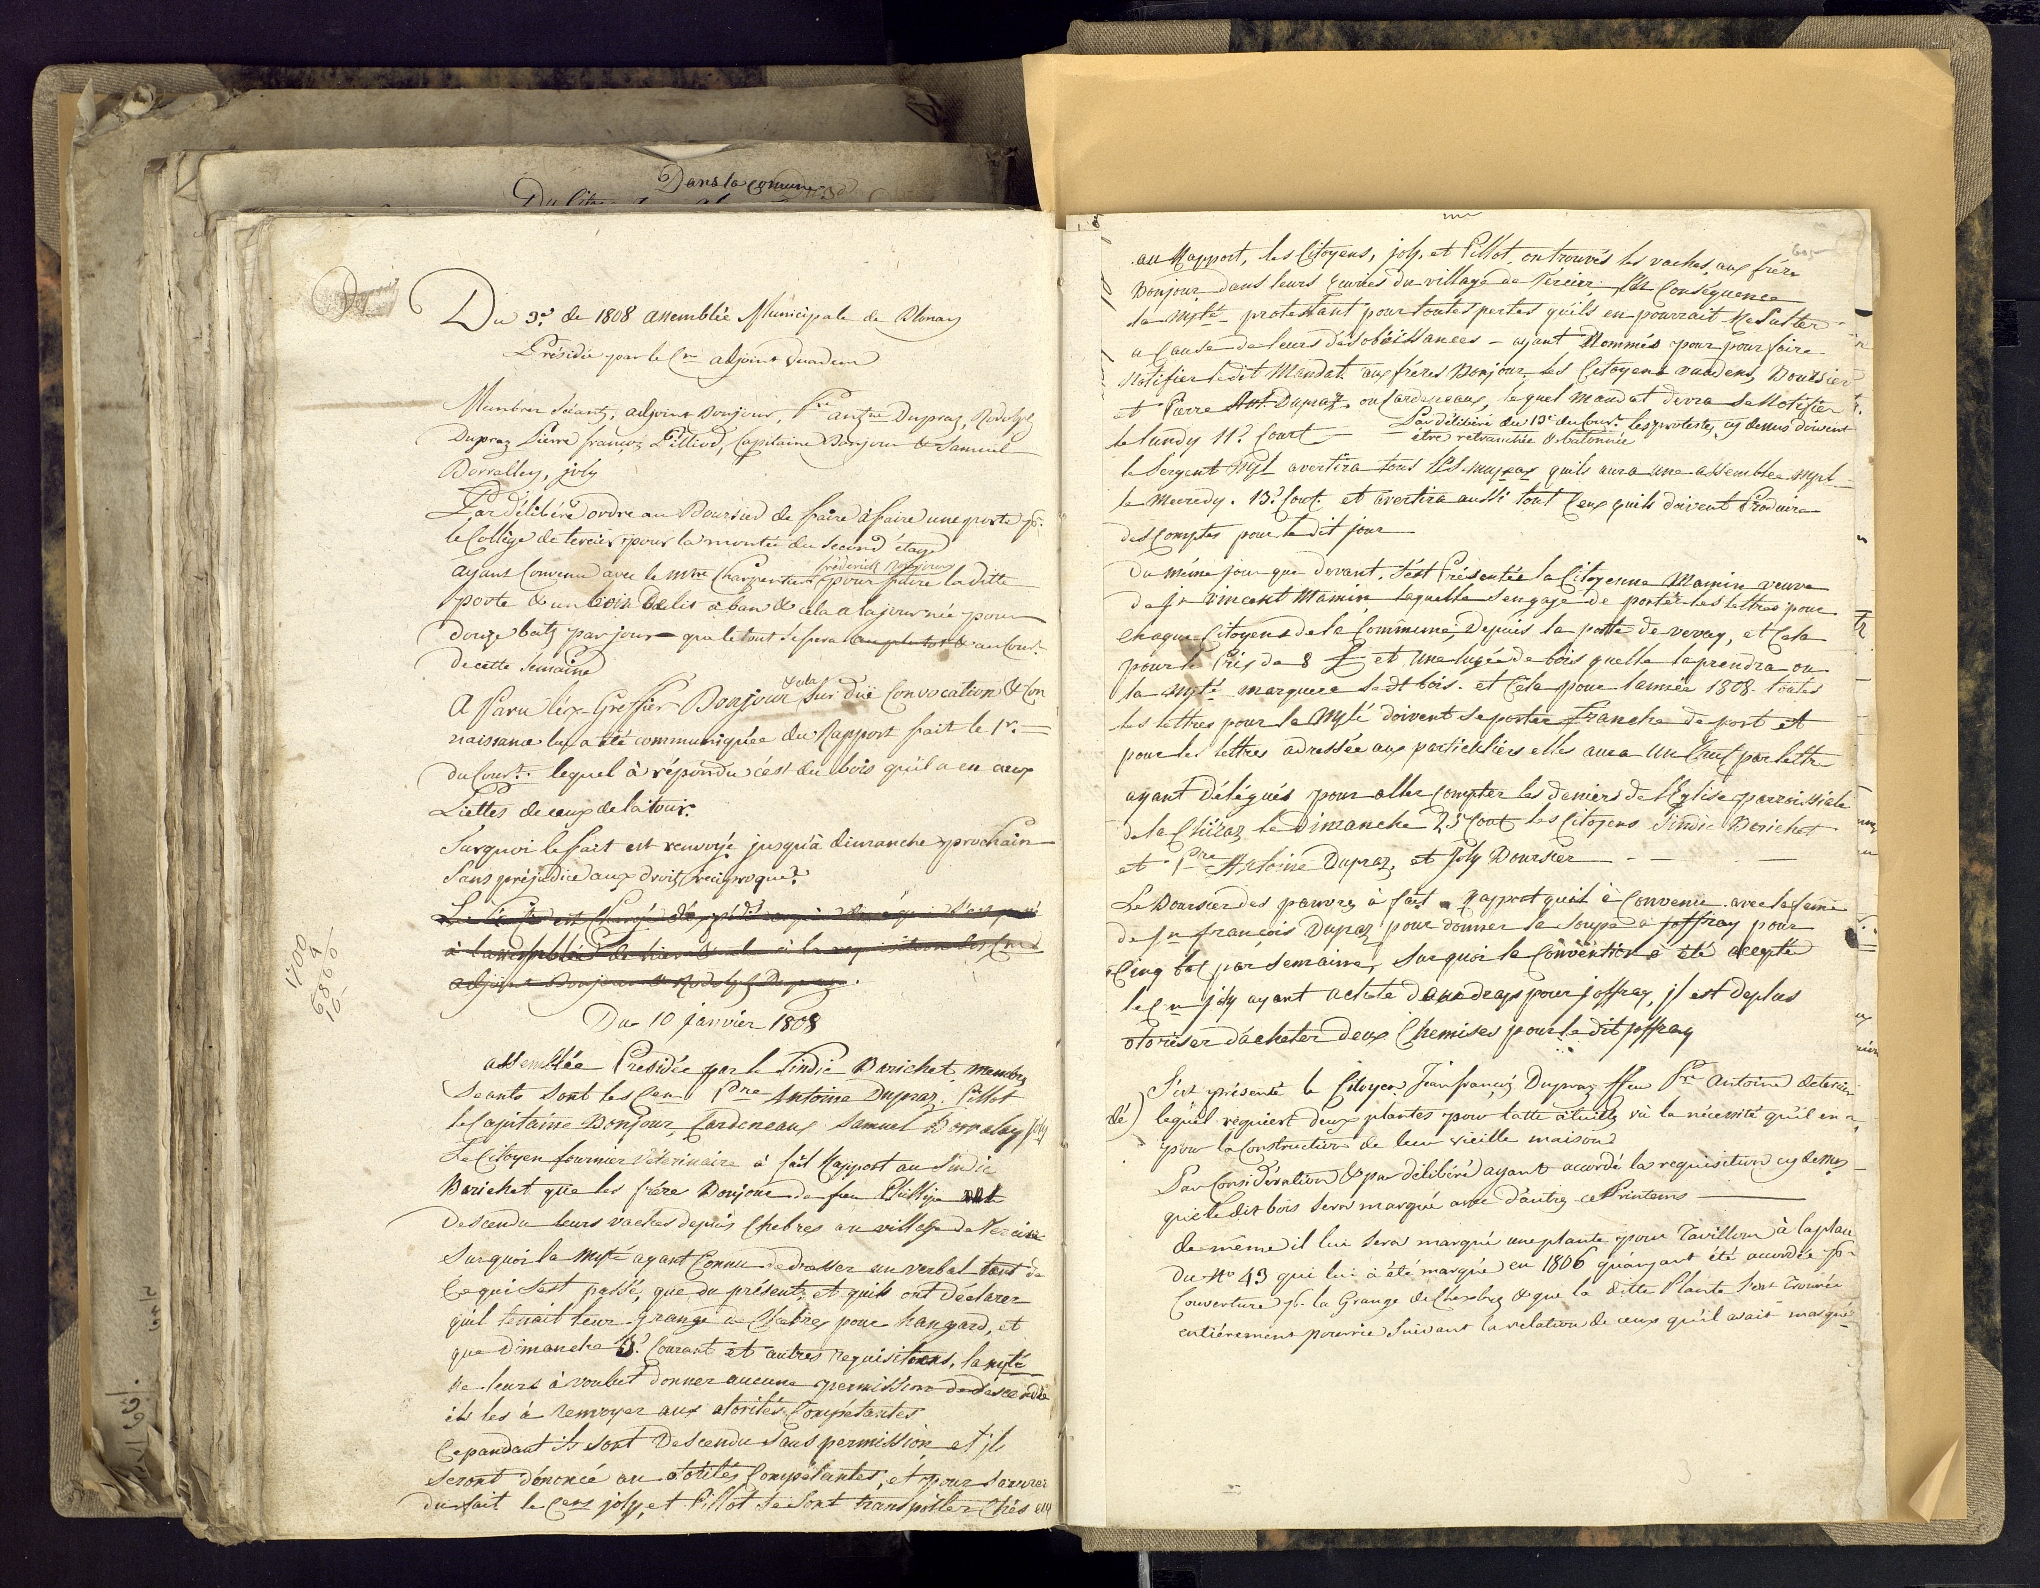 Dans la comune
Du 3e. de 1808 assemblée Municipale de Blonay
Présidée par le Cen adjoint Vuadens
Membres séants, adjoint Bonjour, Pre antne Dupraz, Rodolph
Dupraz Pierre françoz Pilliod, Capitaine Bonjour & Samuel
Borralley, joly
Par délibéré ordre au Boursier de faire à faire une porte pr.
le Collège de terciér pour la montée du second étage
frederich Bonjour
ayant Convenu avec le mtre Charpentier pour faire la ditte
porte & un bois de lis à ban & cela a la journée pour
douze batz par jour que le tout se fera au plutot & au Cour.t
de cette semaine
A Paru l'ex-Greffier Bonjour & cela sur düe Convocation & Con
naissance luy a été communiquée du Rapport fait le 1r.
du Cour.t. lequel à répondu c'est du bois qu'il a eu aux
Liettes de ceux de la tour.
Surquoi le fait est renvoyé jusqu'à dimanche prochain
sans préjudice aux droits réciproques.
adjoint Bonjour & Rodolph Dupraz.
1700
4
6800
10
Du 10 janvier 1808
assemblée Presidée par le Sindic Borichet, membres
seants sont les Cens Pre Antoine Dupraz, Pillot
le Capitaine Bonjour, Cardeneaux Samuel Borralay joly
Le Citoyen fournier Véterinaire à fait Rapport au Sindic
Borichet que les frére Bonjour de feu Philippe ont
descendu leurs vaches depuis Chebres au village de Terciér
Surquoi la Mpté ayant Connu de dresser un verbal tant de
Ce qui s'est passé, que du présent, et quils ont déclarer
quil tenait leur grange de Chebres pour hangard, et
que dimanche 3e. Courant et autres requisitions, la mpté
ne leurs à voulut donner aucune permission de descendre
ils les à renvoyer aux otorités Compétantes
Cepandant ils sont descendu sans permission et ils
seront dénoncé au otorités Compétantes, et pour s'assurer
du fait le Cens joly, et Pillot se sont transpotter Chés eux
au Rapport, les Citoyens, joly et Pillot, on trouvés les vaches aux frére
Bonjour dans leurs Ecuries du village de Terciér, Par Conséquence
la Mpté protestant pour toutes pertes quils en pourrait Resulter
a Cause de leurs désobéissances - ayant Nommés pour pour faire
Notifier le dit Mandat aux fréres Bonjour, les Citoyens vuadens, Boursier
et Pierre Ant. Dupraz, ou Cardeneaux, lequel mandat devra se Notifier
le lundy 11e. Court
Par délibéré du 13e du Cour.t les protestes cy dessus doivent
être retranchée & batonnée
le Sergent Mpl avertira tous les mupaux quils aura une assemblée mpl
le mecredy. 13e. Court. et avertira aussi tout Ceux quils doivent Produire
des Comptes pour le dit jour
Du méme jour que devant, s'est Présentée la Citoyenne Mamin veuve
de fn vincent Mamin laquelle s'engage de porter les lettres pour
Chaque Citoyens de la Commune, depuis la poste de vevey, et Cela
pour le Prix de 8 £ et une lugée de bois quelle la prendra ou
la mpté marquera le dt bois. et Cela pour lannée 1808. toutes
les lettres pour la Mpté doivent se porter franche de port et
pour les lettres adressée aux particuliers elles aura un Cruz par lettre
ayant Délégués pour aller Compter les deniers de l'Eglise parroissiale
de la Chiézaz le Dimanche 25 Court les Citoyens Sindic Borichet
et Pre Antoine Dupraz, et Joly Boursier
Le Boursier des pauvres à fait Rapport quil à Convenu avec la feme
de fn françois Dupraz pour donner la Soupe à joffray pour
Cinq bat par semaine, Surquoi la Convention à été accepté
le Cn joly ayant acheté deux draps pour joffrey, il est deplus
otoriser d'acheter deux Chemises pour le dit joffrey
S'est présenté le Citoyen Jean françois Dupraz ffeu Pre Antoine de terciér
dé) lequel réquiert deux plantes pour latte à tuille vû la nécessité qu'il en a,
pour la Construction de leur vieille maison
Par Considération & par délibéré ayant accordé la requisition cy dessus
que le dit bois sera marqué avec d'autres ce Printems
de même il lui sera marqué une plante pour Tavillon à la place
du No 43 qui lui à été marqué en 1806 quàyant été accordée pr
Couverture pr. la Grange de Chexbres & que la ditte Plante s'est trouvée
entiérement pourrie suivant la relation de ceux qu'il avait marqué